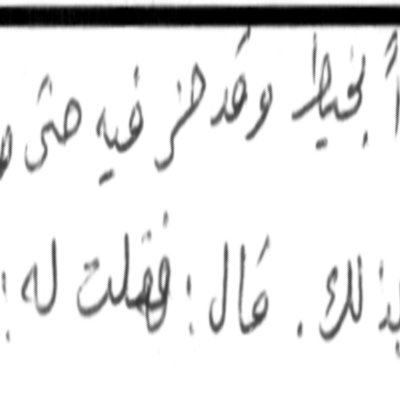 بخيط وقد حز فيه حتى
لك. قال: فقلت له: